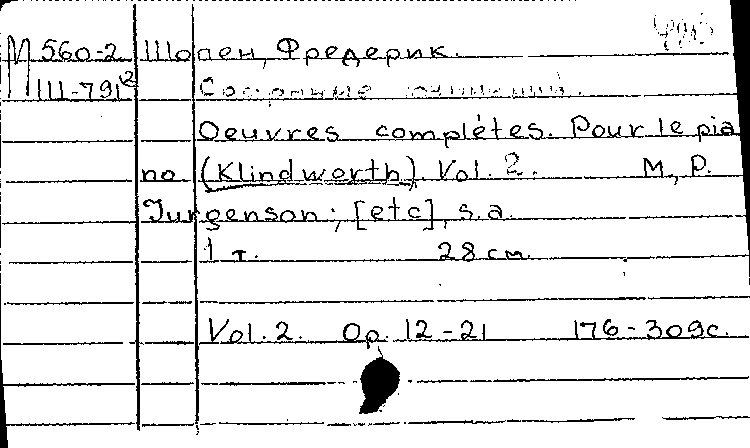 М 560-2 Шопен, Фредерик.
III-791²
Собранные сочинений.
Oeuvres complétes. Pour le pia
no (Klindworth). Vol. 2. M., P.
Jurgenson; [etc], s.a.
1 т. 28 см.
Vol. 2. Op. 12-21 176-309с.